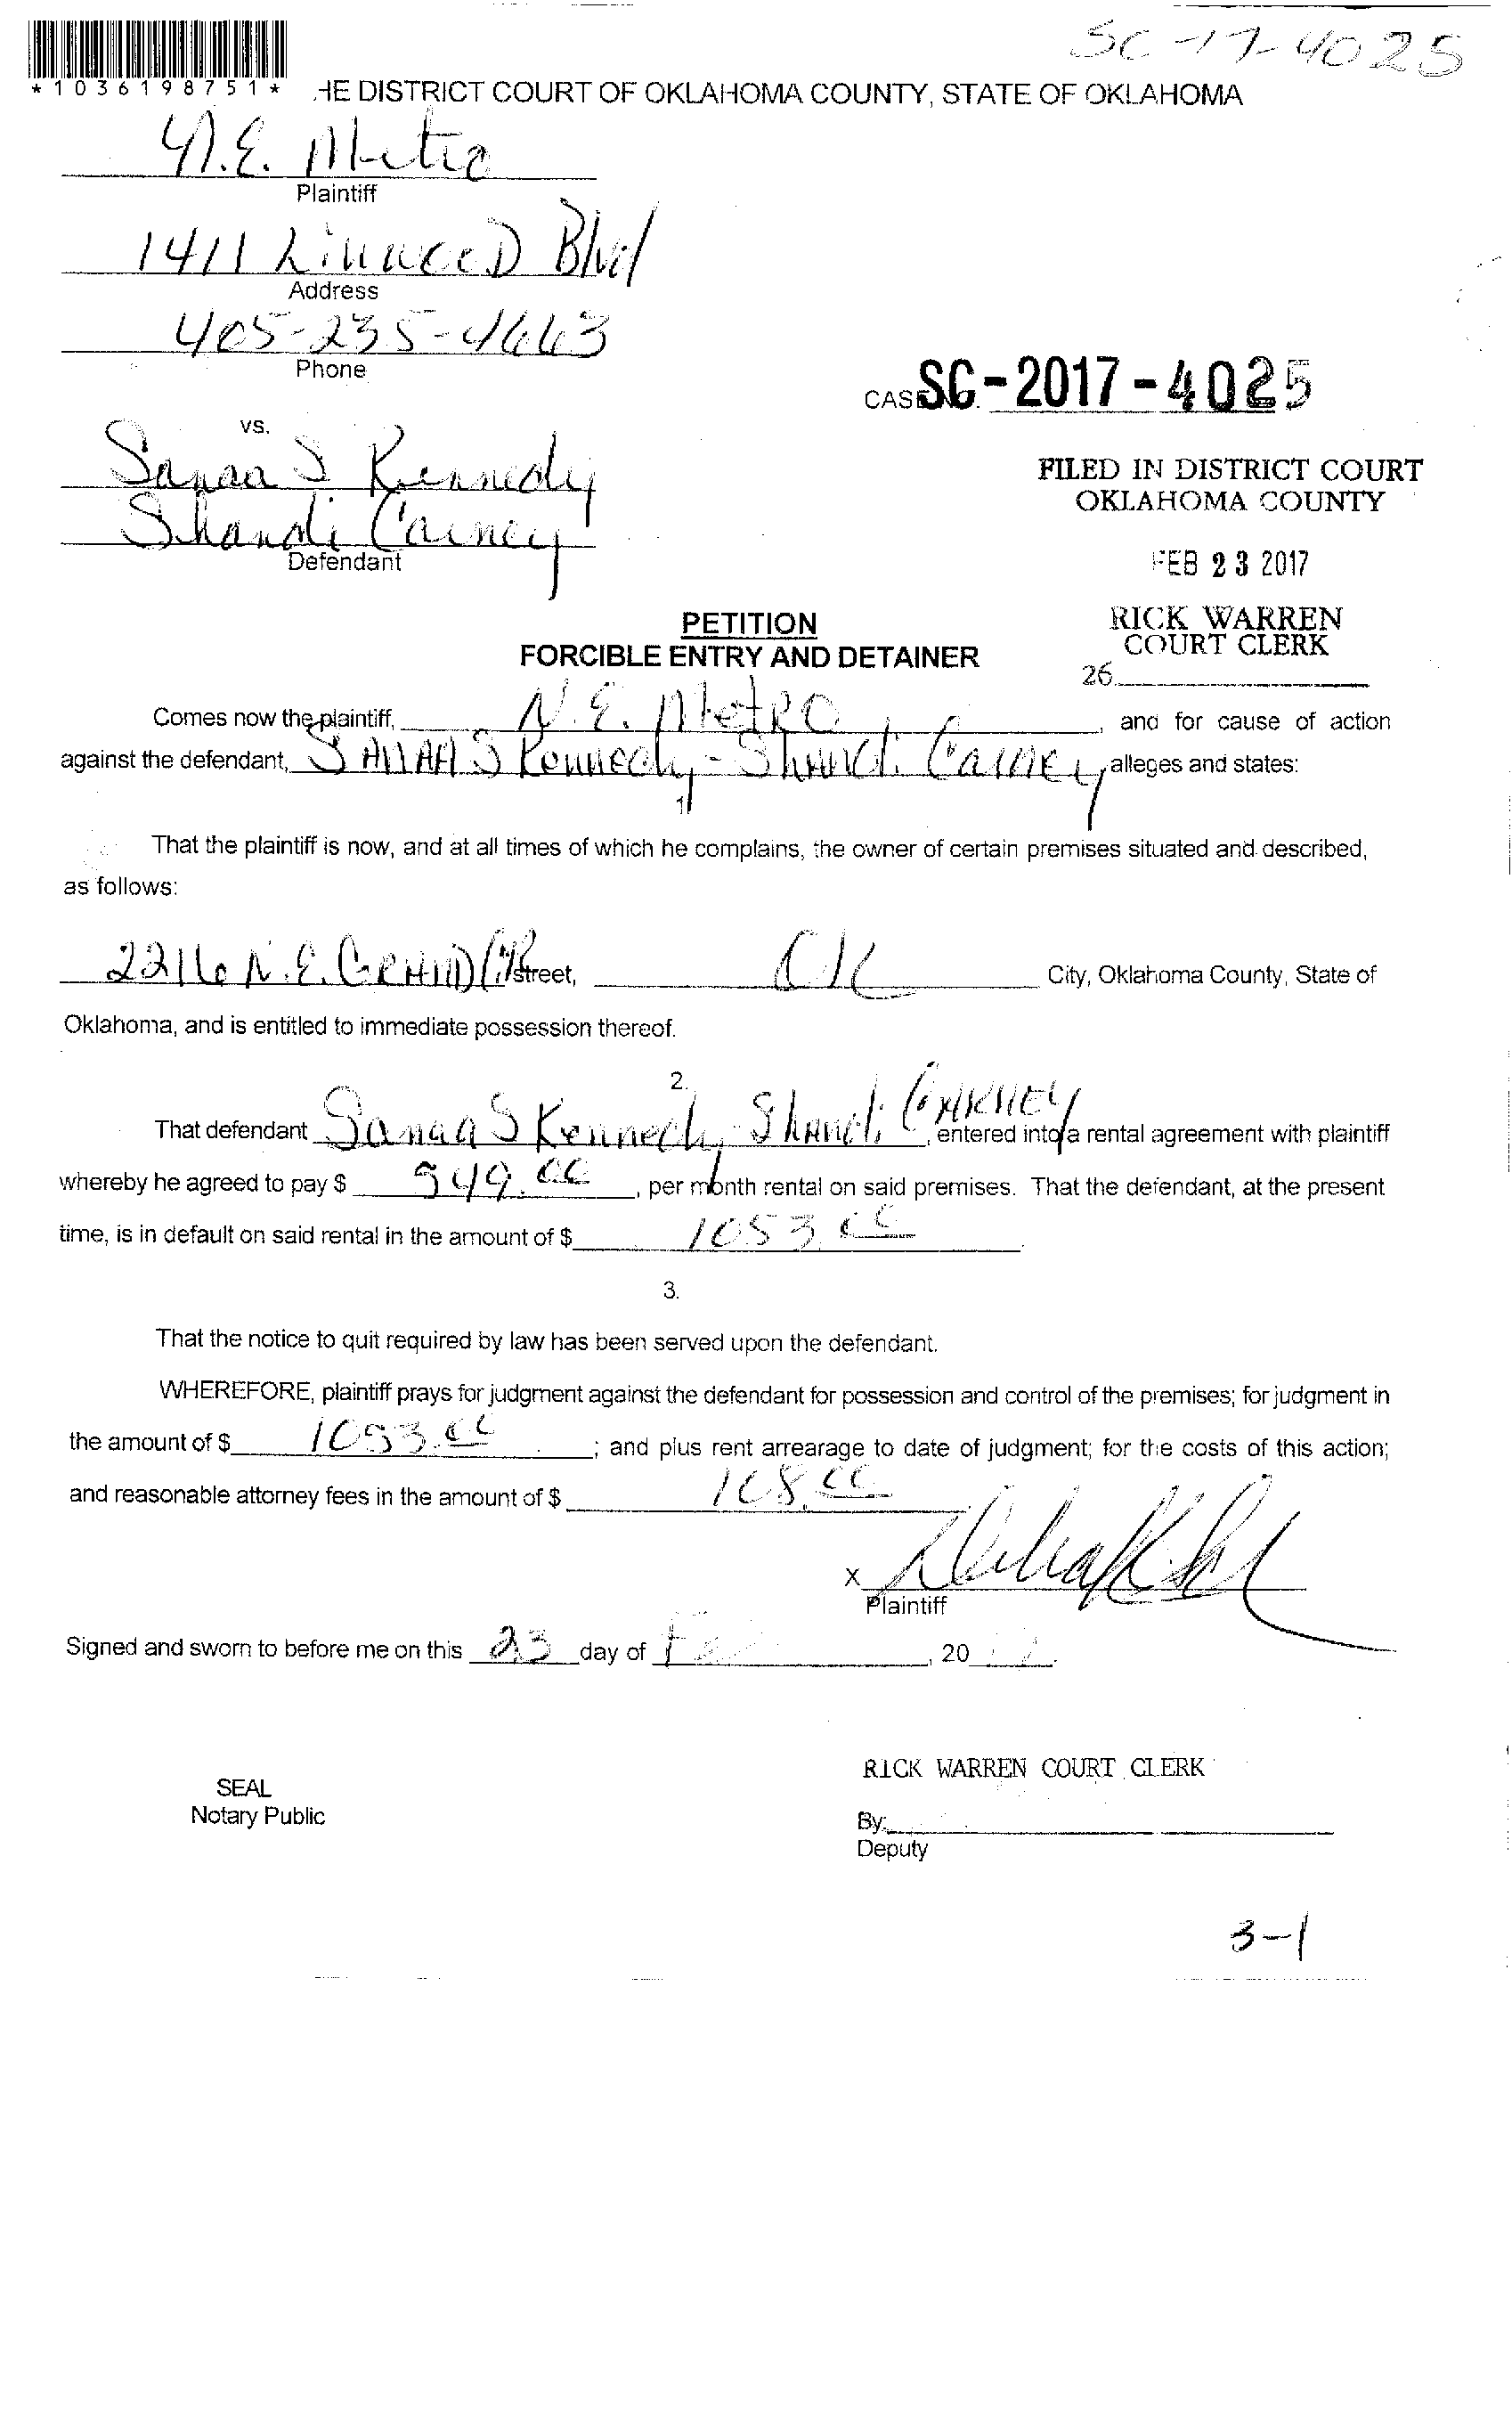 SC-17-4025
*1036198751* HE DISTRICT COURT OF OKLAHOMA COUNTY, STATE OF OKLAHOMA
N.E. Metro
Plaintiff
1411 Linwood Blvd
Address
405-235-4663
Phone
CASE NO. SC-2017-4025
vs.
Sanaa S Kennedy
FILED IN DISTRICT COURT
OKLAHOMA COUNTY
Shandi Cainey
Defendant
FEB 23 2017
PETITION
RICK WARREN
COURT CLERK
FORCIBLE ENTRY AND DETAINER
26
Comes now the plaintiff, N.E. Metro, and for cause of action
against the defendant, Sanaa S Kennedy - Shandi Cainey alleges and states:
1
That the plaintiff is now, and at all times of which he complains, the owner of certain premises situated and described,
as follows:
2216 N.E. Grand Street, City, Oklahoma County, State of
Oklahoma, and is entitled to immediate possession thereof.
2.
That defendant Sanaa S Kennedy Shandi, entered into a rental agreement with plaintiff
whereby he agreed to pay $ 549.00, per month rental on said premises. That the defendant, at the present
time, is in default on said rental in the amount of $ 1053.00.
3.
That the notice to quit required by law has been served upon the defendant.
WHEREFORE, plaintiff prays for judgment against the defendant for possession and control of the premises; for judgment in
the amount of $ 1053.00; and plus rent arrearage to date of judgment; for the costs of this action;
and reasonable attorney fees in the amount of $ 108.00
X
Plaintiff
Signed and sworn to before me on this 23 day of Feb, 20
RICK WARREN COURT CLERK
SEAL
Notary Public
By:
Deputy
3-1